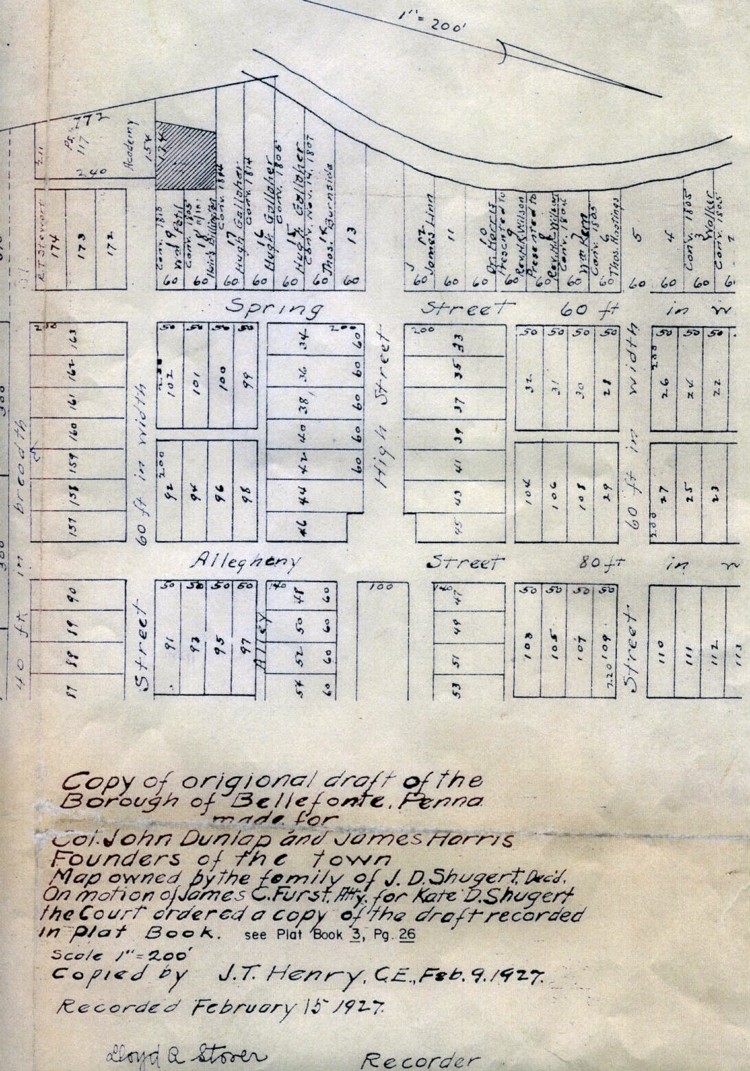 1" = 200'
772
Pt.
117
211
240
Academy
154
174
R. Stewart
174
173
172
Conv. 1810
19
Wm Petit
Conv. 1805
18
60
60
60
Conv. 1814
17
Hugh Gallaher
Conv. 1814
60
16
Hugh Gallaher
Conv. 1806
60
15
Hugh Gallaher
Conv. Nov. 14, 1807
60
14
Thos. Burnside
60
13
12
James Linn
60
11
60
10
Dr. Harris
Presented to
60
9
Rev. H. R. Wilson
Presented to
60
8
Rev. H. R. Wilson
Conv. 1806
60
7
Wm Kem
Conv. 1805
60
6
Thos. Hastings
60
5
60
4
60
Conv. 1805
3
60
Walker
Conv. 1805
2
60
Spring Street 60 ft in w
163
162
161
160
159
158
157
50 50 50 50
200
102
101
100
99
34
36
38
40
42
44
46
200
60
60
60
60
60
High Street
200
33
35
37
39
41
43
45
50 50 50 50
32
31
30
28
50 50 50 50
200
26
24
22
60 ft in width
200
92
94
96
98
104
106
108
29
60 ft in width
200
27
25
23
40 ft in breadth
Allegheny Street 80 ft in w
90
89
88
87
Street
50 50 50 50
91
93
95
97
Alley
140
48
50
52
54
60
60
60
60
100
140
47
49
51
53
50 50 50 50
103
105
107
109
220
Street
110
111
112
113
Copy of origional draft of the
Borough of Bellefonte, Penna
made for
Col. John Dunlap and James Harris
Founders of the town
Map owned by the family of J. D. Shugert, Dec'd.
On motion of James C. Furst, Atty. for Kate D. Shugert
the Court ordered a copy of the draft recorded
in Plat Book. see Plat Book 3, Pg. 26
Scale 1" = 200'
Copied by J. T. Henry, C.E., Feb. 9. 1927.
Recorded February 15 1927.
Lloyd A Stover Recorder